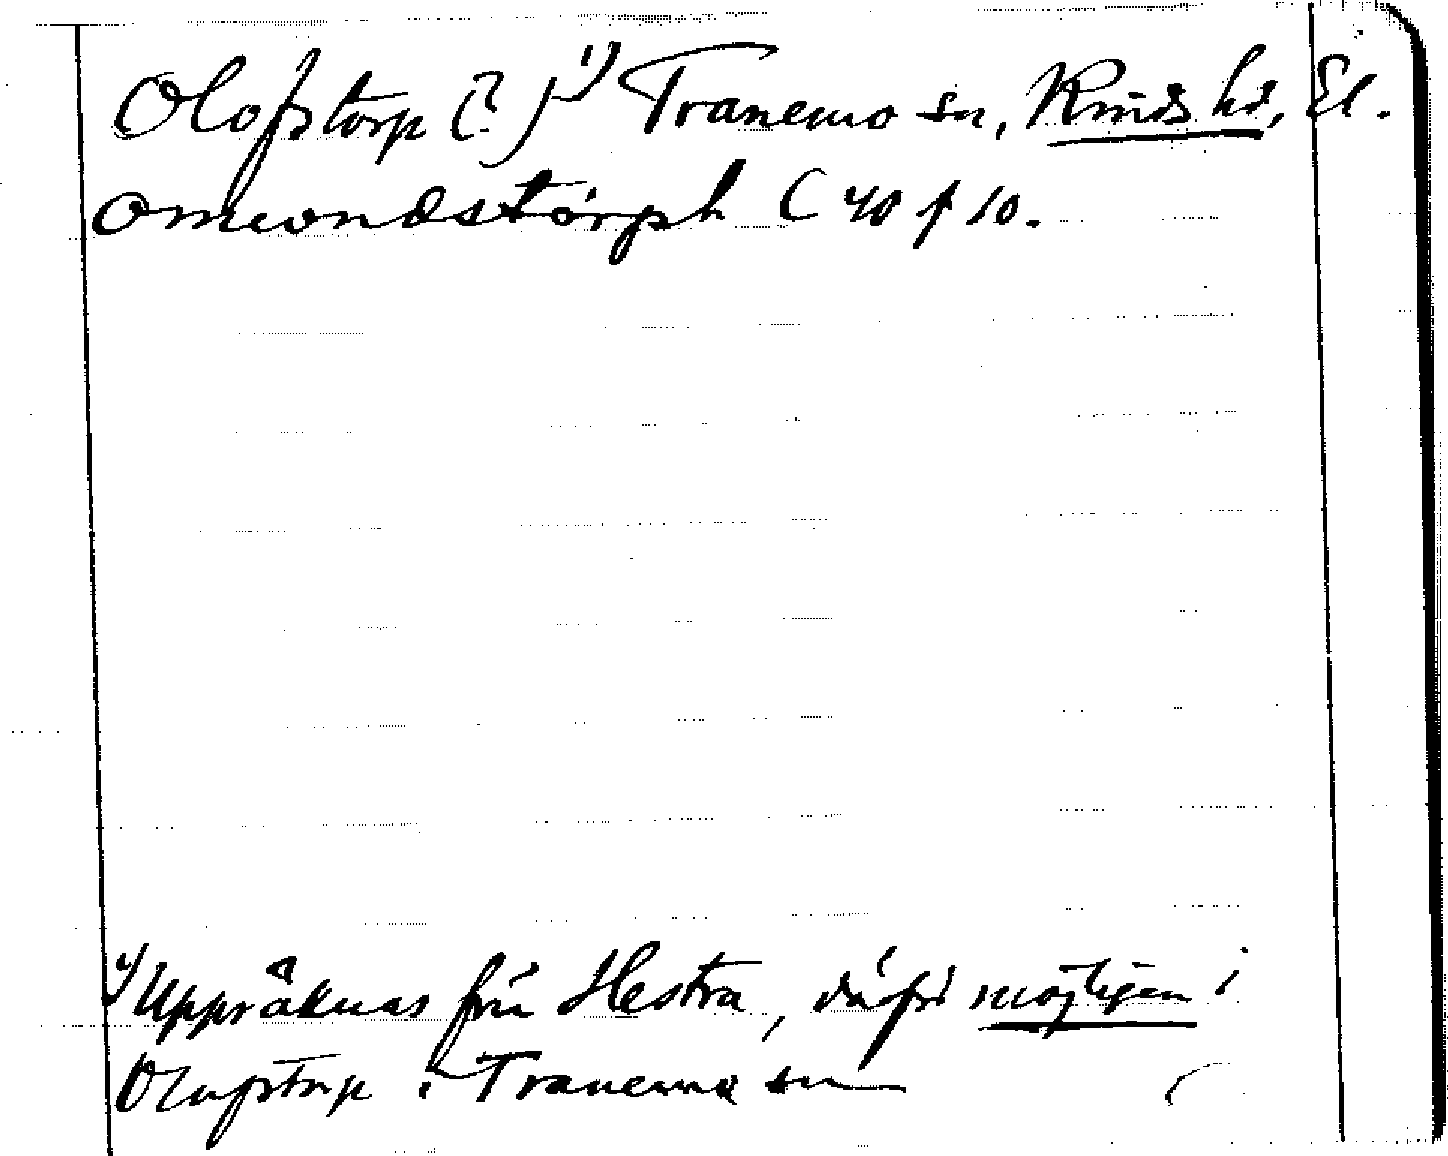 Olofstorp (?)¹⁾ Tranemo sn, Kinds hd, El.
omwondstörph C 40 f 10.
¹⁾ Uppräknas från Hestra, därför möjligen i
Olufstorp i Tranemo sn